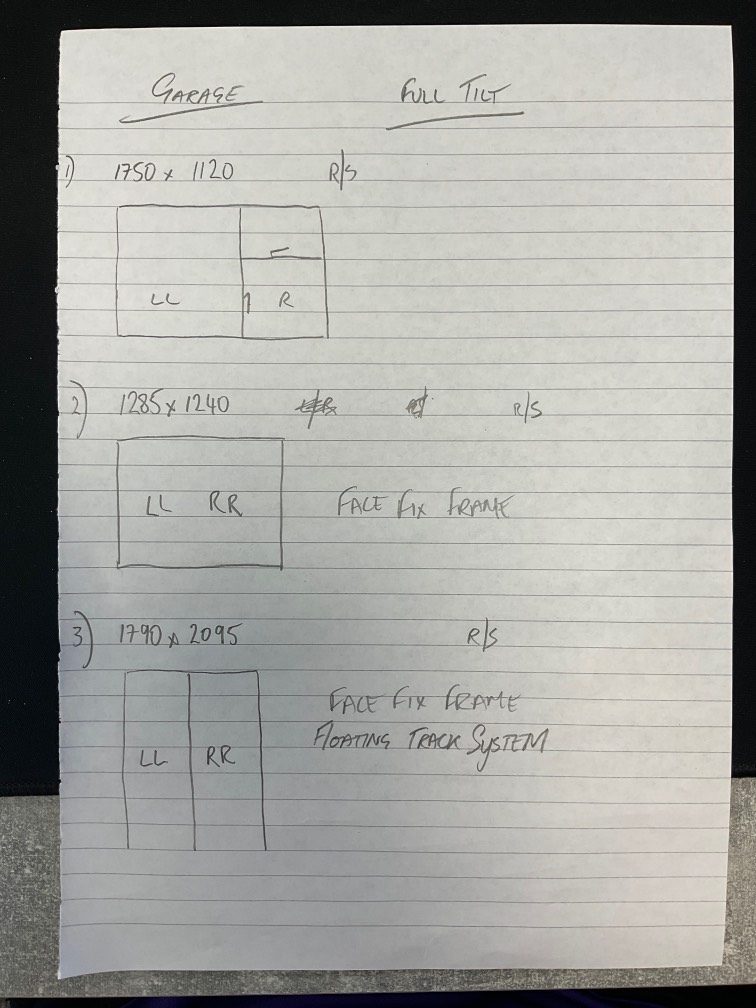 GARAGE FULL TILT
1) 1750 x 1120 R/S
LL R
2) 1285 x 1240 R/S
LL RR FACE FIX FRAME
3) 1790 x 2095 R/S
FACE FIX FRAME
FLOATING TRACK SYSTEM
LL RR